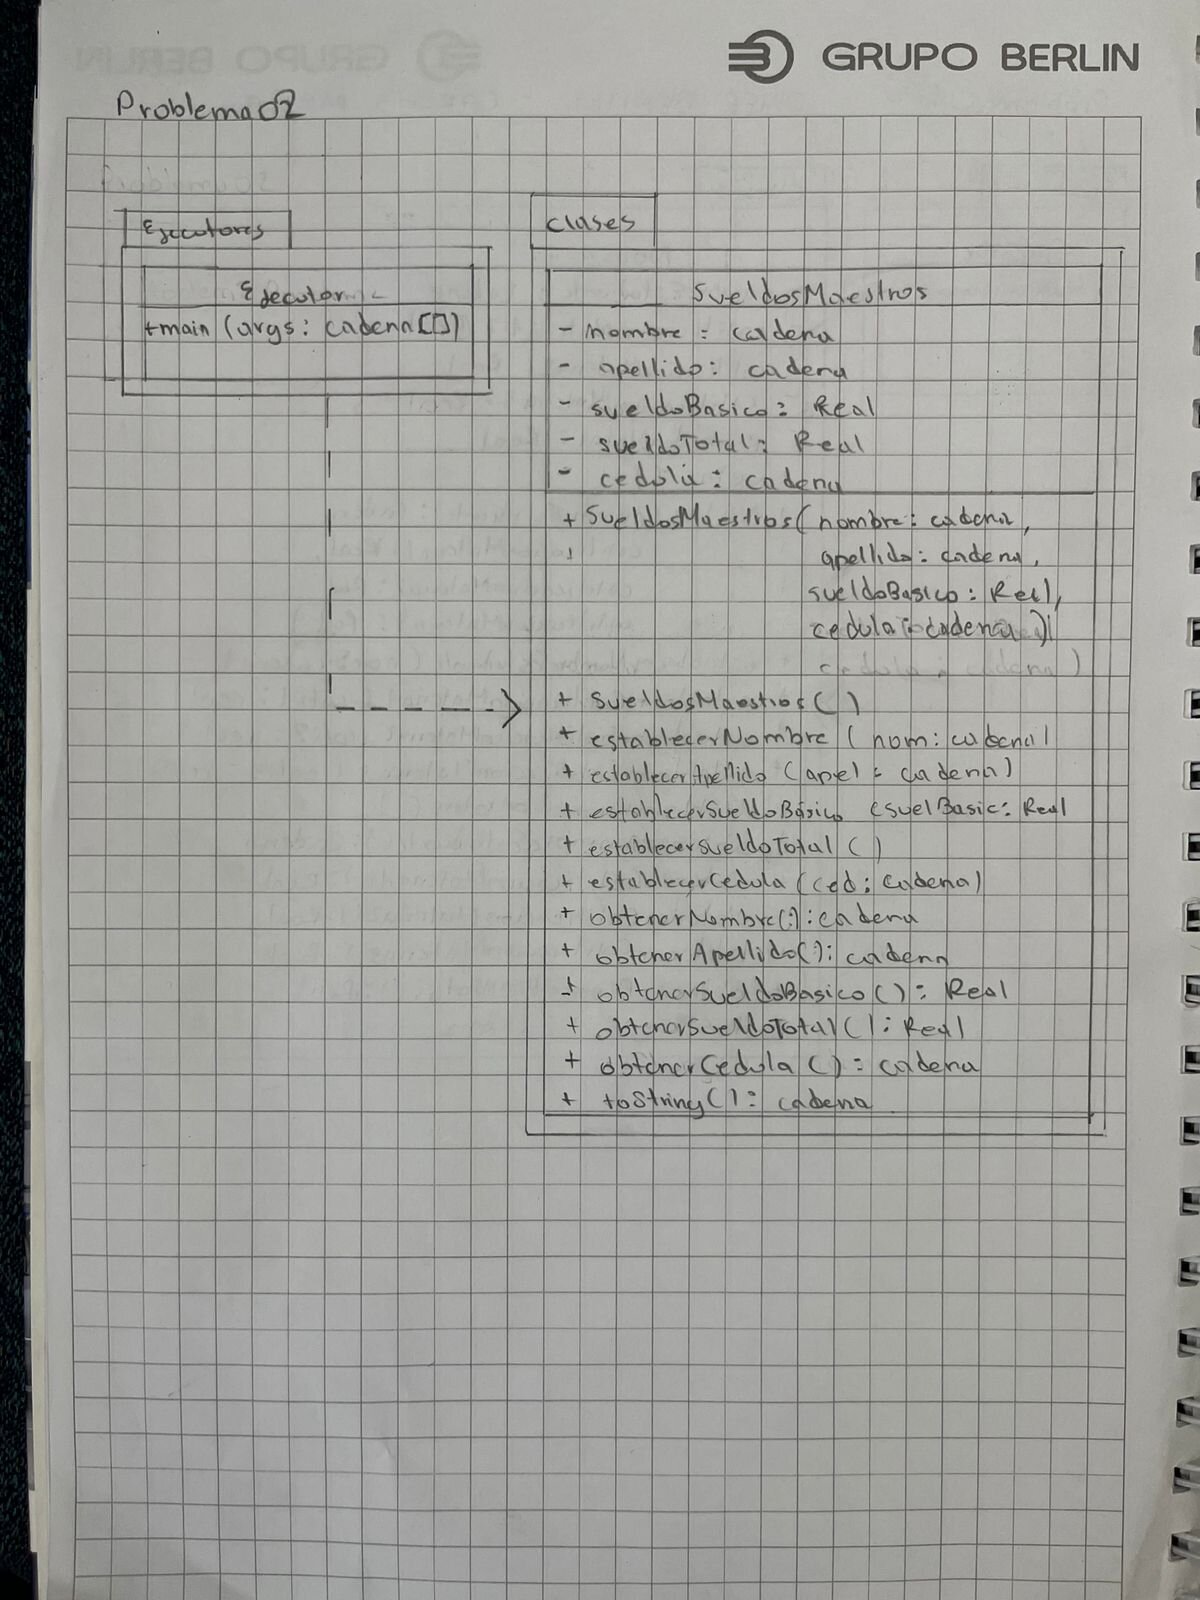 GRUPO BERLIN
Problema02
Ejecutores
Ejecutor
+main (args: cadena[])
clases
SueldosMaestros
- nombre : cadena
- apellido : cadena
- sueldoBasico : Real
- sueldoTotal : Real
- cedula : cadena
+ SueldosMaestros( nombre : cadena,
apellido : cadena,
sueldoBasico : Real,
cedula : cadena )
+ SueldosMaestros ( )
+ establecerNombre ( nom : cadena)
+ establecerApellido (apel : cadena)
+ establecerSueldoBásico (suelBasic : Real
+ establecersueldoTotal ( )
+ establecerCedula (ced : cadena)
+ obtenerNombre() : cadena
+ obtenerApellido() : cadena
+ obtenerSueldoBasico ( ) : Real
+ obtenerSueldoTotal ( ) : Real
+ obtenerCedula ( ) : cadena
+ toString ( ) : cadena